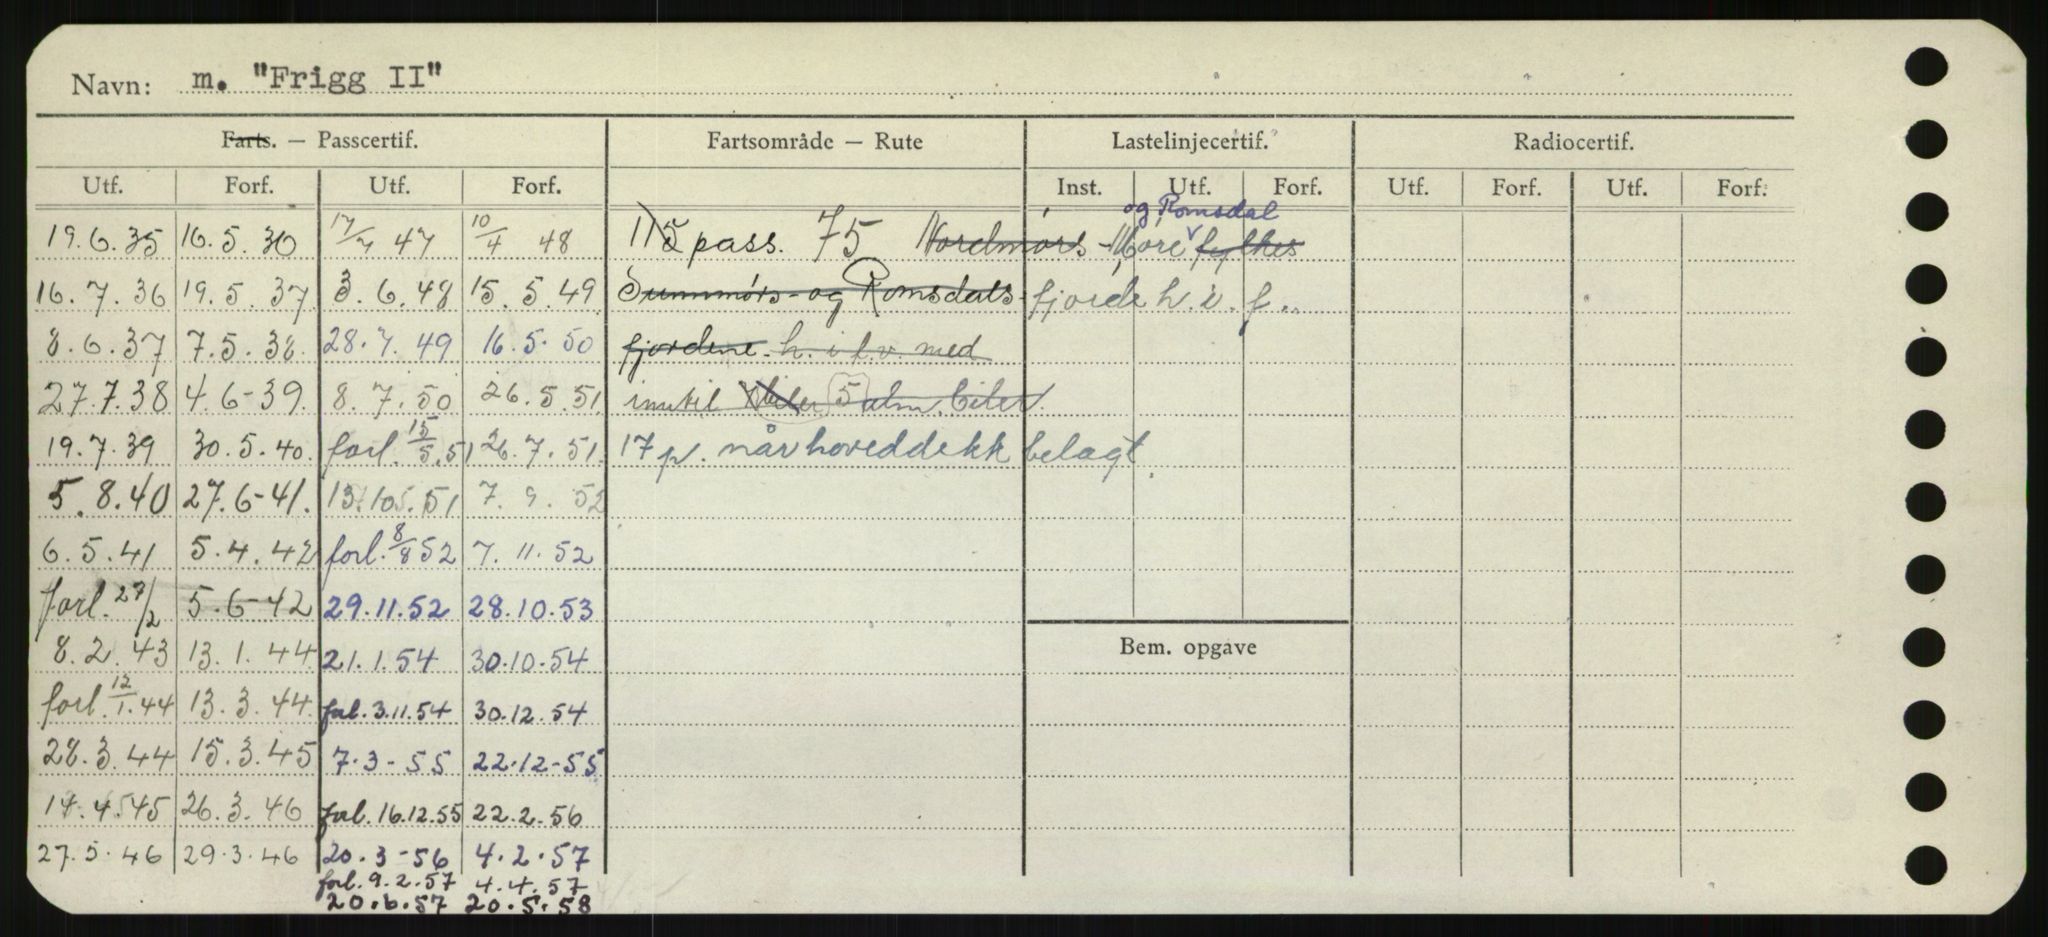 Navn: m. "Frigg II"
Farts. — Passcertif. Fartsområde — Rute Lastelinjecertif. Radiocertif.
Utf. Forf. Utf. Forf. Inst. Utf. Forf. Utf. Forf. Utf. Forf.
og Romsdal
19.6.35 16.5.36 17/7 47 10/4 48 115 pass. 75 Nordmørs - Møre fylkes
16.7.36 19.5.37 3.6.48 15.5.49 Sunnmørs- og Romsdals- fjorde h.i.f..
8.6.37 7.5.38. 28.7.49 16.5.50 fjordene. h.i.f.v. med
27.7.38 4.6-39. 8.7.50 26.5.51 inntil biler 5 alm. biler.
19.7.39 30.5.40. forl. 15/5.51 26.7.51. 17 p. når hoveddekk belagt.
5.8.40 27.6-41. 13.10.51 7.9.52
6.5.41 5.4.42 forl. 8/8 52 7.11.52
forl. 27/2 5.6-42 29.11.52 28.10.53
8.2.43 13.1.44 21.1.54 30.10.54 Bem. opgave
forl. 12/1.44 13.3.44 forl. 3.11.54 30.12.54
28.3.44 15.3.45 7.3-55 22.12-55
14.4.45 26.3.46 forl. 16.12.55 22.2.56
27.5.46 29.3.46 20.3-56 4.2.57
forl. 9.2.57 4.4.57
20.6.57 20.5.58